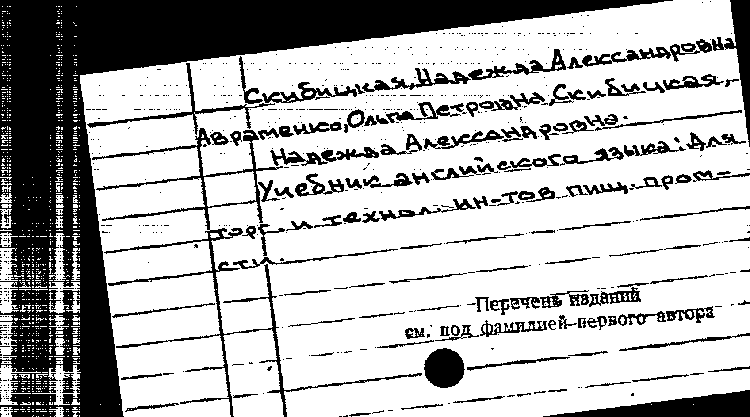 Скибицкая, Надежда Александровна
Авраменко, Ольга Петровна, Скибицкая,
Надежда Александровна.
Учебник английского языка: Для
торг. и технол. ин-тов пищ. пром-
сти.
Перечень изданий
см. под фамилией первого автора